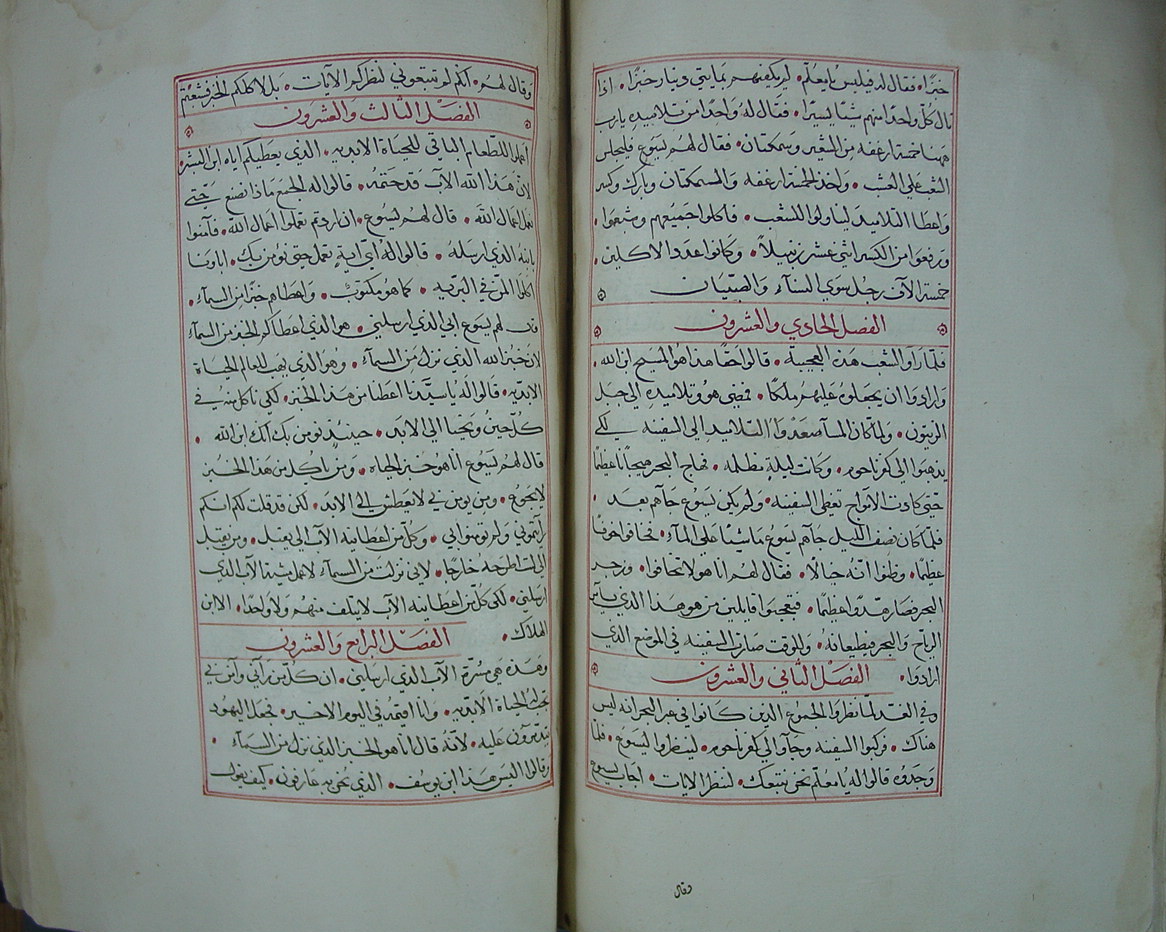 خبزا • فقال له فيلبس يا معلم • لم يكفيهم بمايتي دينار خبزا • اذا
نال كل واحد منهم شيئا يسيرا • فقال له واحدا من تلاميذه يارب
ههنا خمسة ارغفه من الشعير وسمكتان • فقال لهم يسوع فليجلس
الشعب علي العشب • واخذ الخمسة ارغفه والسمكتان وبارك وكسر
واعطا التلاميذ ليناولوا للشعب • فاكلوا جميعهم وشبعوا •
ورفعوا من الكسر اثني عشر زنبيلا • وكانوا عدد الاكلين •
خمسة الآف رجل سوي النسآء والصبيان
الفصل الحادي والعشرون
فلما راوا الشعب هذه العجيبة • قالوا حقا هذا هو المسيح ابن الله •
وارادوا ان يجعلوه عليهم ملكا • فمضي هو وتلاميذه الي جبل
الزيتون • ولما كان المسآ صعدوا التلاميذ الي السفينه لكي
يذهبوا الي كفرناحوم • وكانت ليلة مظلمه • فهاج البحر هيجانا عظيما
حتي كادت الامواج تغطي السفينه • ولم يكن يسوع جآهم بعد
فلما كان نصف الليل جآهم يسوع ماشيا علي المآء • فخافوا خوفا
عظيما • وظنوا انه خيالا • فقال لهم انا هو لا تخافوا • وزجر
البحر فصار هدوا عظيما • فتعجبوا قايلين من هو هذا الذي يامر
الرياح والبحر فيطيعانه • وللوقت صارت السفينه في الموضع الذي
ارادوا • الفصل الثاني والعشرون
وفي الغد لما نظروا الجموع الذين كانوا في عبر البحر انه ليس
هناك • فركبوا السفينه وجآوا الي كفرناحوم • لينظروا ليسوع • فلما
وجدوه قالوا له يا معلم نحن نتبعك • لننظر الايات • اجاب يسوع
وقال
وقال لهم • انكم لم تتبعوني لنظركم الآيات • بل لاكلكم الخبز فشبعتم
الفصل الثالث والعشرون
اعملوا للطعام الباقي للحياة الابديه • الذي يعطيكم اياه ابن البشر
لان هذا الله الآب قد ختمه • قالوا له الجمع ماذا نصنع حتي
نعمل اعمال الله • قال لهم يسوع • ان اردتم تعملوا اعمال الله • فآمنوا
بابنه الذي ارسله • قالوا له اي آية تعمل حتي نومن بك • اباونا
اكلوا المن في البريه • كما هو مكتوب • واعطاهم خبزا من السمآء •
قال لهم يسوع ابي الذي ارسلني • هو الذي اعطاكم الخبز من السمآء
لان خبز الله الذي نزل من السمآء • وهو الذي يهب للعالم الحياة
الابديه • قالوا له يا سيدنا اعطنا من هذا الخبز • لكي ناكل منه في
كل حين ونحيا الي الابد • حينيذ نومن بك انك ابن الله •
قال لهم يسوع انا هو خبز الحياه • ومن اكل من هذا الخبز
لا يجوع • ومن يومن بي لا يعطش الي الابد • لكن قد قلت لكم انكم
رايتموني ولم تومنوا بي • وكل من اعطانيه الآب الي يقبل • ومن يقبل
الي لست اطرحه خارجا • لاني نزلت من السمآء لاعمل مشية الآب الذي
ارسلني • لكي كل من اعطانيه الآب لا يتلف منهم ولا واحدا • الا ابن
الهلاك • الفصل الرابع والعشرون
وهذه هي مسرة الآب الذي ارسلني • ان كل من رآني وآمن بي
تجب له الحياة الابديه • وانا اقيمه في اليوم الاخير • فجعل اليهود
يتذمرون عليه • لانه قال انا هو الخبز الذي نزل من السمآء •
وقالوا اليس هذا ابن يوسف • الذي نحن به عارفون • كيف يقول